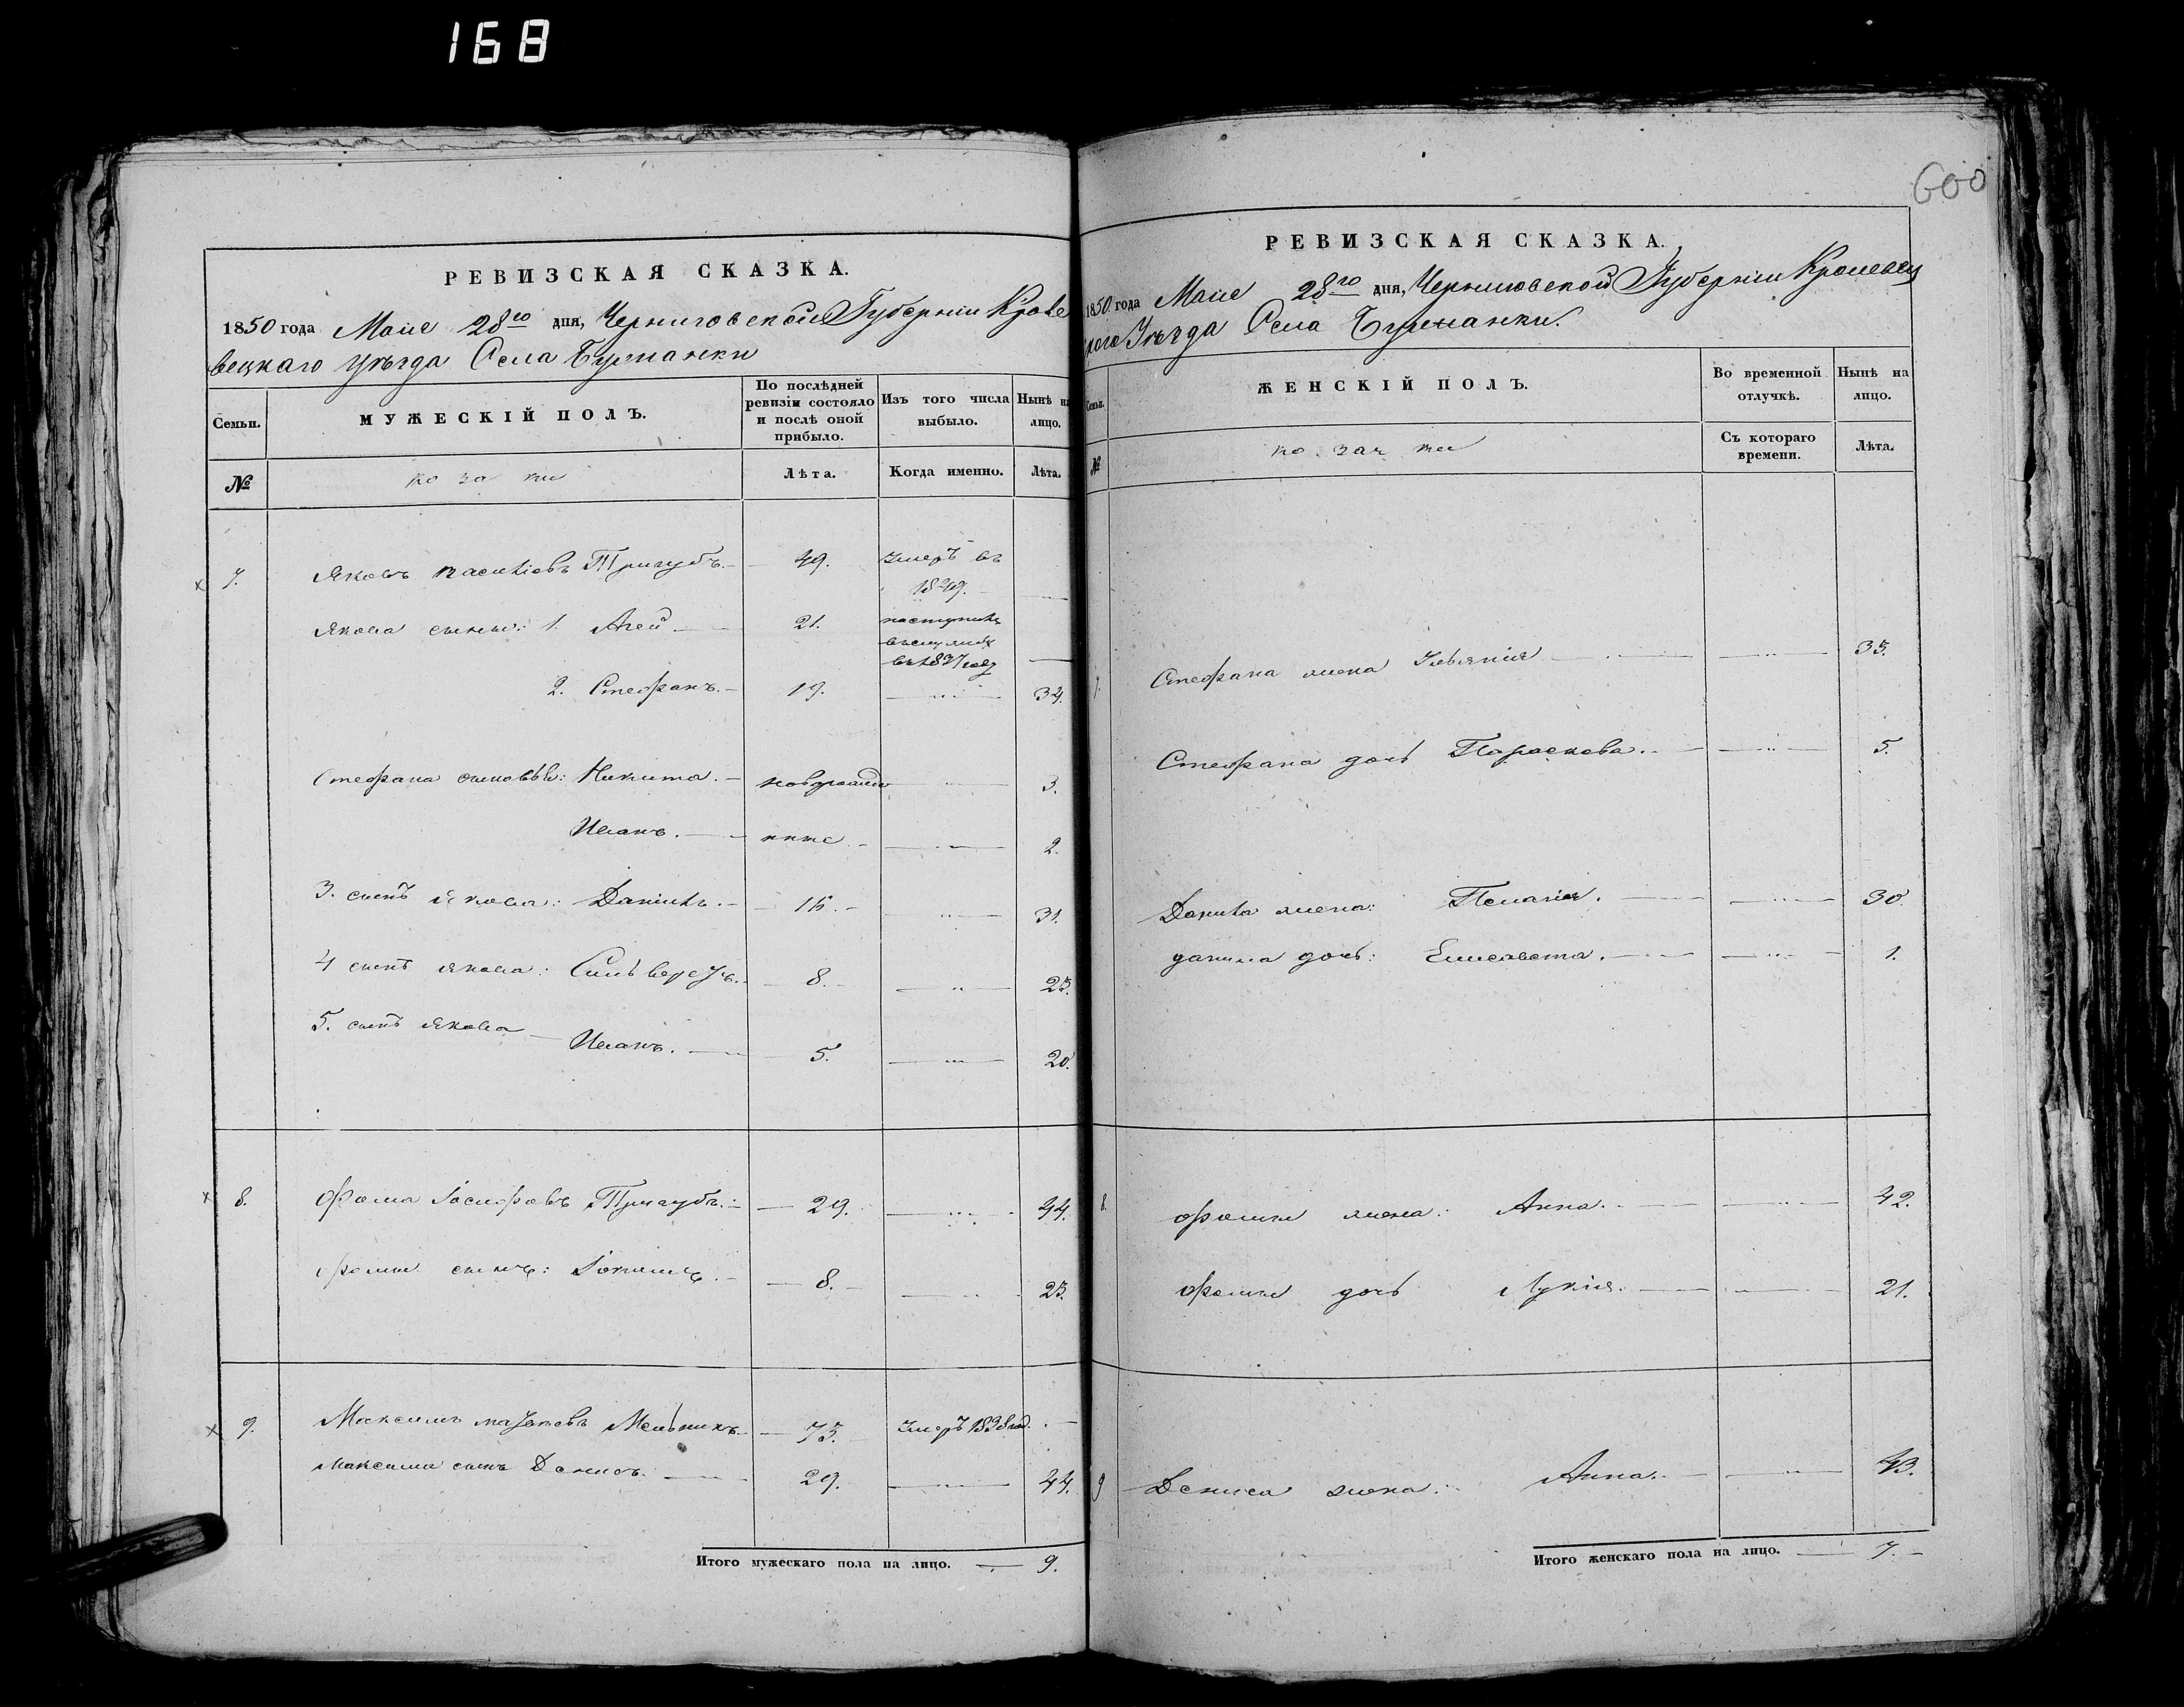 168
600
РЕВИЗСКАЯ СКАЗКА.
1850 года Мая 28го дня, Черниговской Губерніи Кроле
вецкаго уѣзда Села
Семьи. МУЖЕСКІЙ ПОЛЪ. По послѣдней ревизіи состояло и послѣ оной прибыло. Изъ того числа выбыло. Нынѣ на лицо.
№ козаки Лѣта. Когда именно. Лѣта.
7. Яковъ Васильевъ Тригубъ. 49. умеръ въ 1849.
Якова сыны: 1. Агей 21. поступилъ въ 1837 году
2. Стефанъ. 19. 34.
Стефана сыновья: Никита. 3.
Иванъ. 2.
3. сынъ Якова: Данилъ. 16. 31.
4 сынъ Якова: Сильверстъ. 8. 23.
5. сынъ Якова Иванъ. 5. 20.
8. Фома Іосифовъ Тригубъ. 29. 44.
Фомы сынъ: 8. 23.
9. Максимъ Мельникъ 73. умеръ 1838 год.
Максима сынъ Денисъ. 29. 44.
Итого мужескаго пола на лицо. 9.
РЕВИЗСКАЯ СКАЗКА.
1850 года Мая 28го дня, Черниговской Губерніи Кролевец
кого Уѣзда Села
Семьи. ЖЕНСКІЙ ПОЛЪ. Во временной отлучкѣ. Нынѣ на лицо.
№ козачки Съ котораго времени. Лѣта.
7. Стефана жена Ульянія 33.
Стефана дочь Параскева. 5.
Данила жена: Пелагія. 30.
Данила дочь: Елисавета. 1.
8. Фомы жена: Анна. 42.
Фомы дочь Лукія. 21.
9 Дениса жена: Анна. 43.
Итого женскаго пола на лицо. 7.